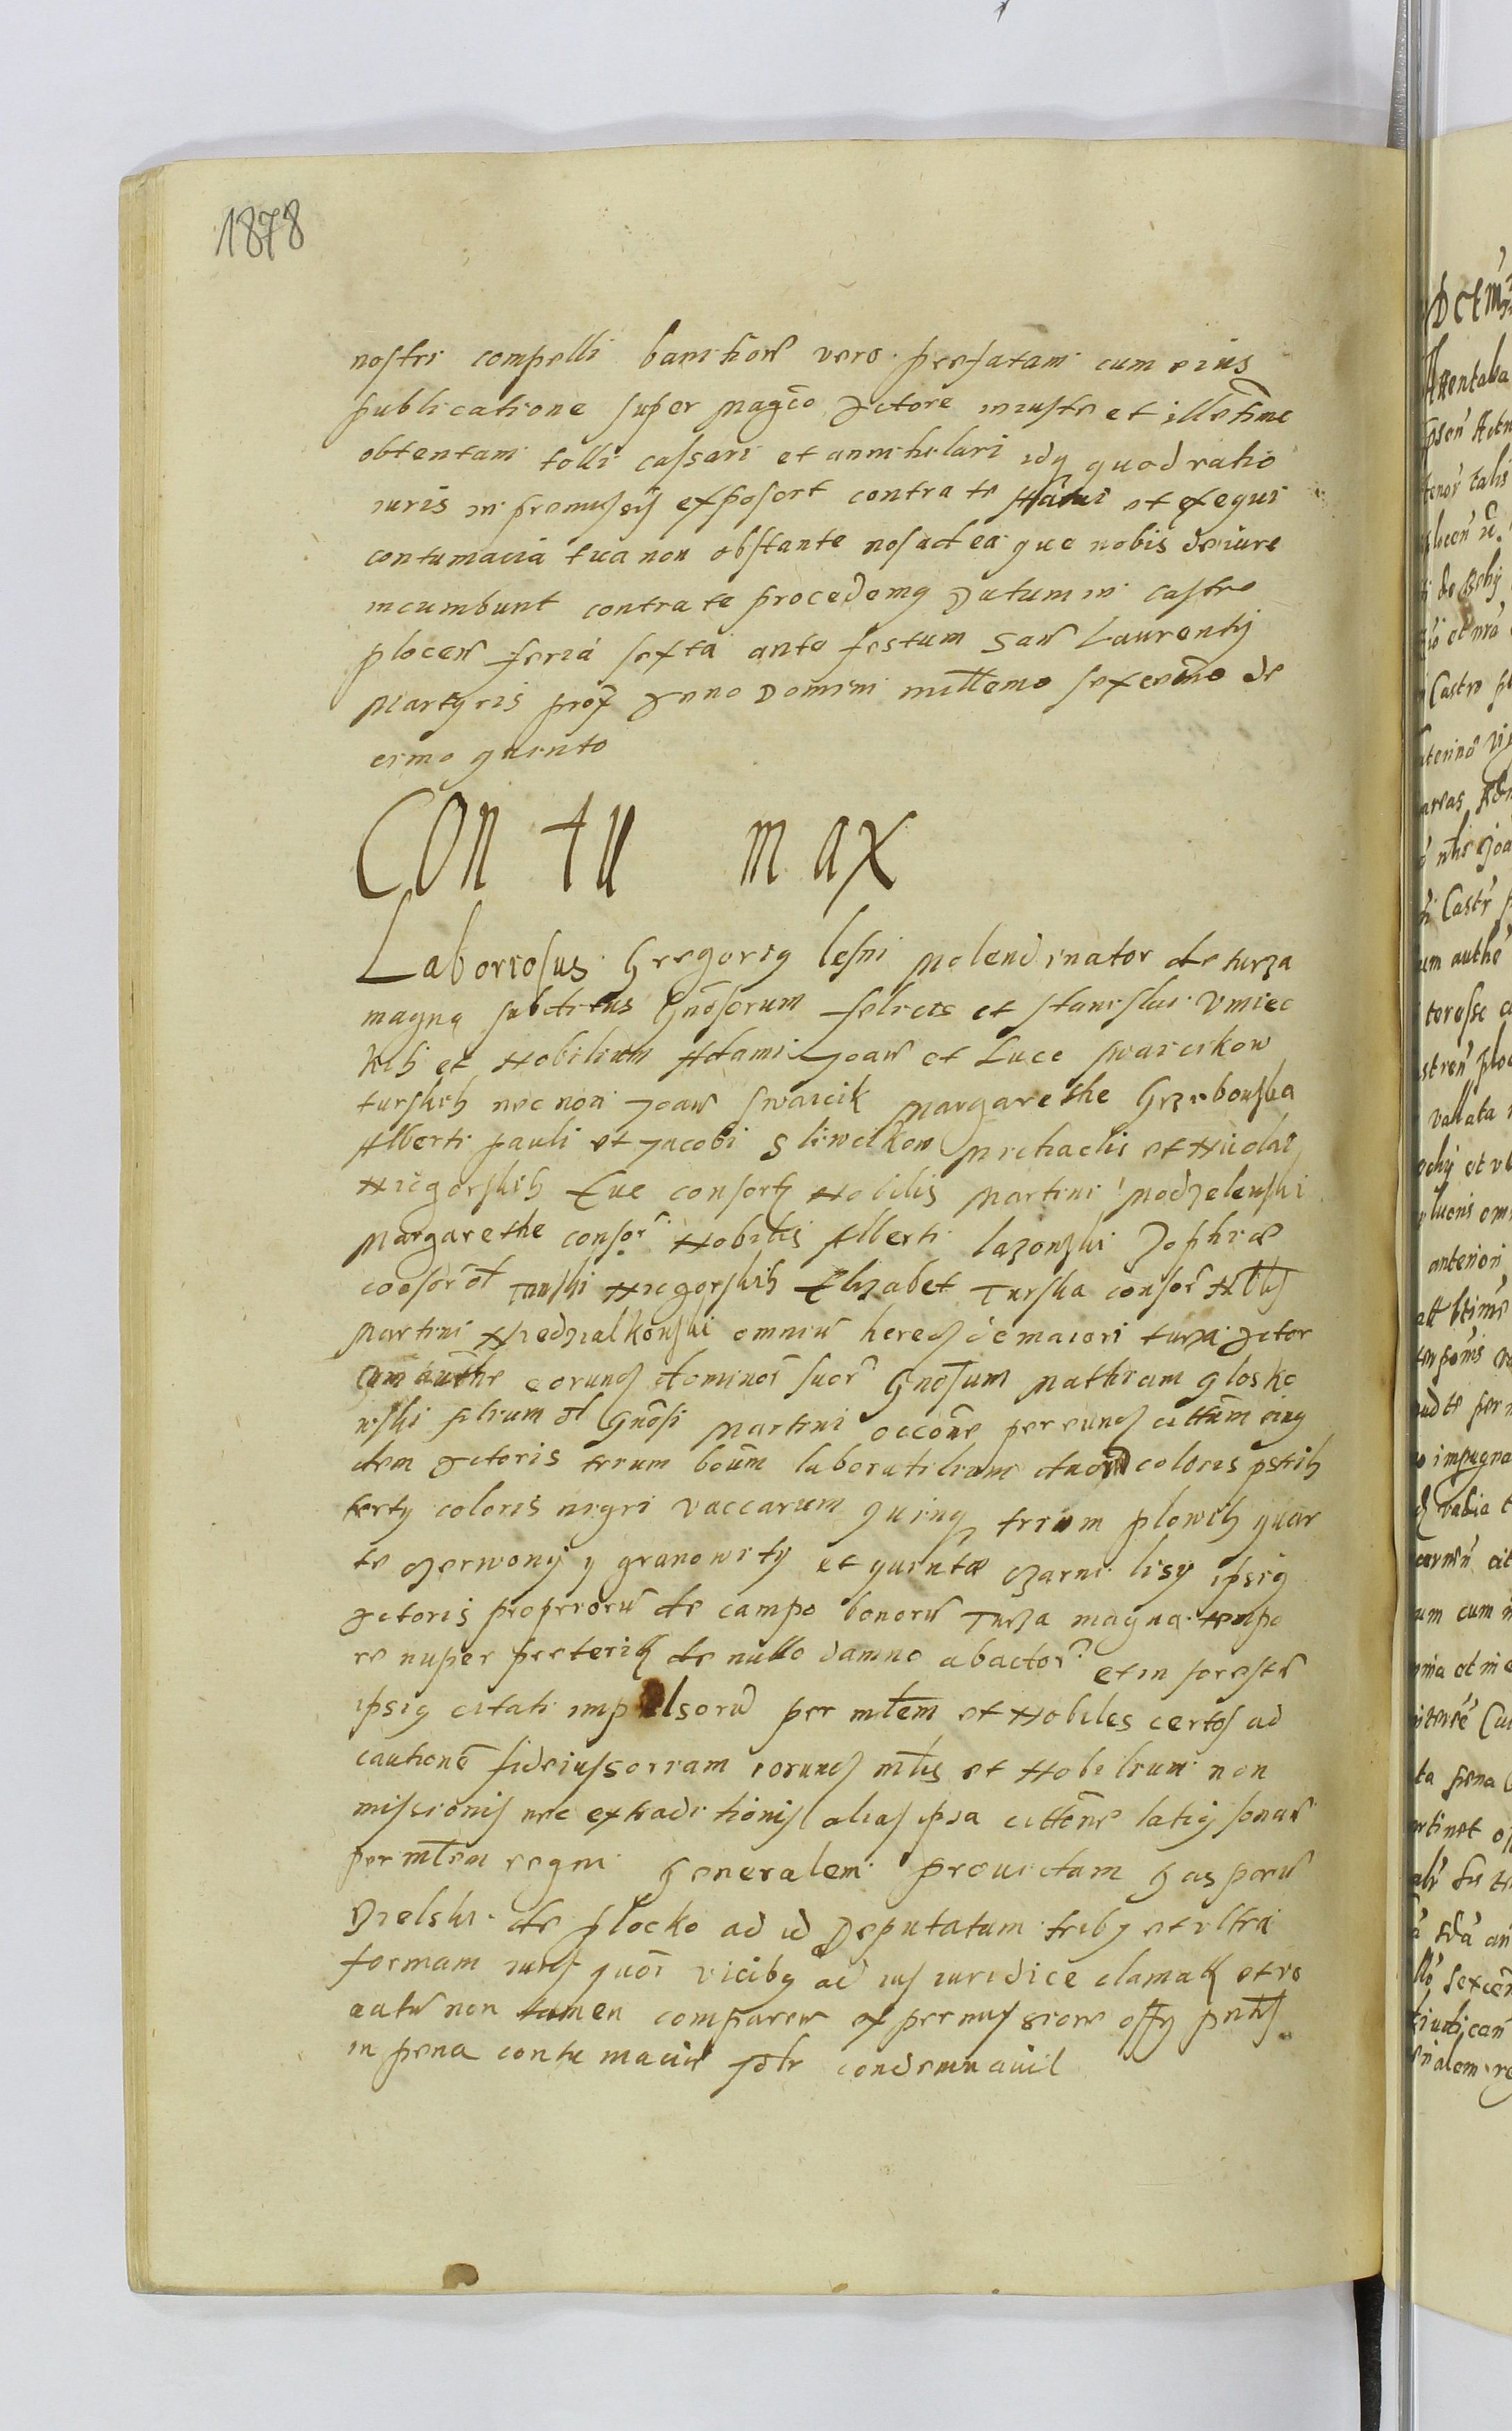 1878
nostri compelli banitionē vero prefatam cum eius
publicatione super magco Actore iniuste et illetime
obtentam tolli cassari et annihilari idq quod ratio
iuris in premissis exposcet contra te statui et exequi
contumacia tua non obstante nos ad ea que nobis de iure
incumbunt contra te procedemq Datum in castro
plocen feria sexta ante festum San Laurentij
Martyris prox Anno Domini millemo sexcenmo de
cimo quinto
CON TU MAX
Laboriosus Gregoriq lesni Molendinator de turza
magna subditus Gnosorum felicis et stanislai Vmiec
kich et Nobilium Adami Joan et Luce swarcikow
turskich nec non Joan swarcik Margarethe Grzebouska
Alberti pauli et Jacobi Sliwcikow Michaelis et Nicolai
Nicgorskich Eue consort Nobilis Martini Modzelenski
Margarethe consor Nobilis Alberti lazonski Zophiæ
consor ol Turski Nicgorskich Elizabet Turska consor Nblis
Martini Niedzialkouski omniu hered de maiori turza Actor
cum authe eorund dominor suor Gnosum Mathiam glosko
wski filium ol Gnosi Martini occone per eund citatum eiuq
dem Actoris trium boum laboratilium duor coloris pstrich
tertij coloris nigri vaccarum quinq trium plowich quar
te czerwonij y granowity et quintæ czarni lisy ipsiq
Actoris propriorū de campo bonorū Turza magna tempo
re nuper preterito de nullo damno abactor et in forestū
ipsiq citati impulsorū per mlem et Nobiles certos ad
cautionē fideiussoriam eorund mlis et Nobilium non
missionis nec extraditionis alias ipsa cittone latiq sonan
per mlem regni Generalem prouidam Gasparū
Bielski de plocko ad id Deputatum tribq et vltra
formam iuris quor vicibq ad ius iuridice clamat et vo
catū non tamen comparen ex permissione offy pntis
in pena contumaciæ condemnauit